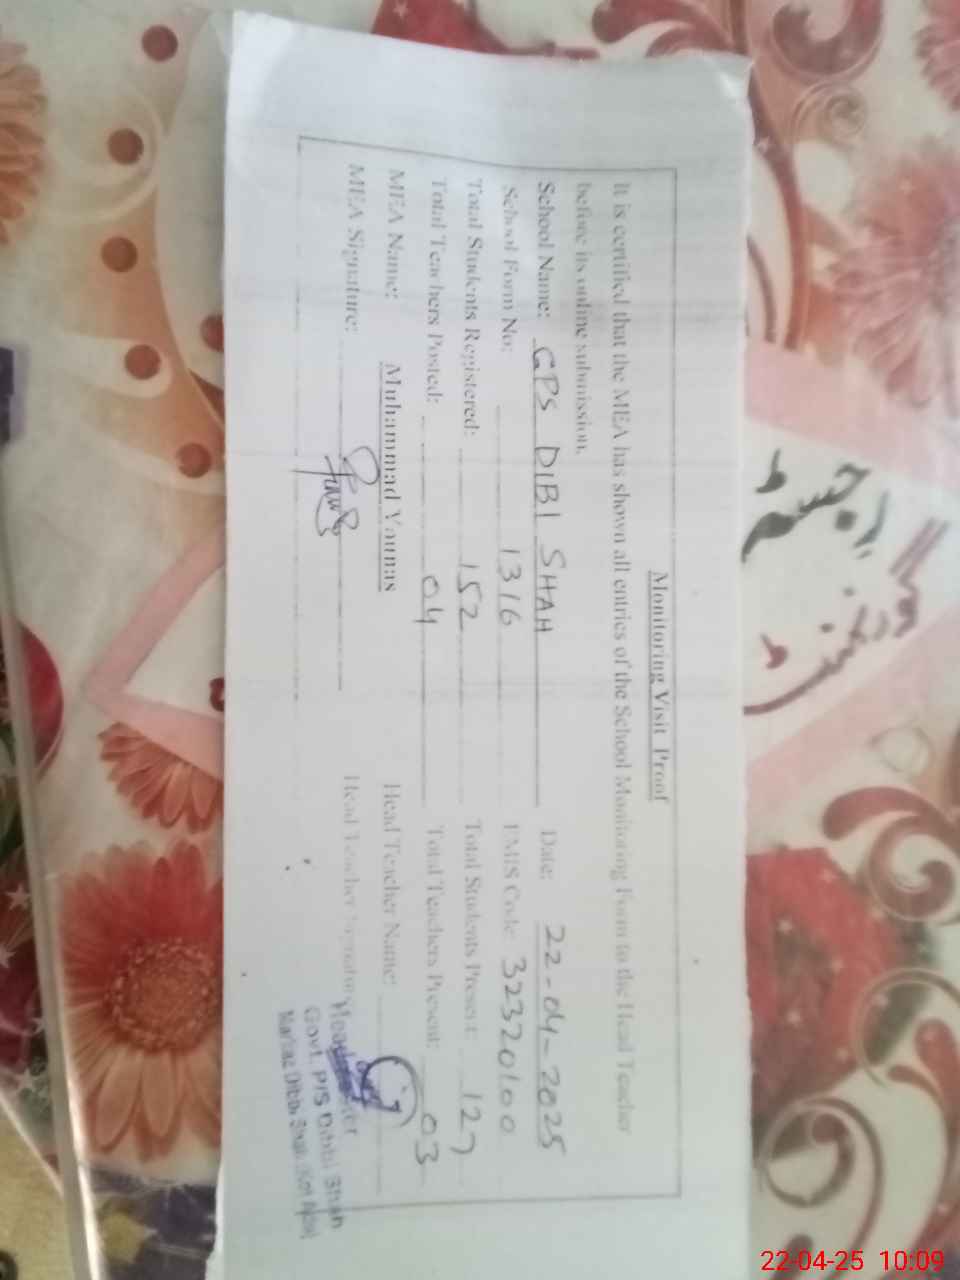 Monitoring Visit Proof
It is certified that the MEA has shown all entries of the School Monitoring Form to the Head Teacher
before its online submission.
School Name: GPS DIBI SHAH Date: 22-04-2025
School Form No: 1316 EMIS Code: 32320100
Total Students Registered: 152 Total Students Present: 127
Total Teachers Posted: 04 Total Teachers Present: 03
MEA Name: Muhammad Younas Head Teacher Name:
MEA Signature: Head Teacher Signature
Govt. P/S Dibbi Shah
Markaz Dibbi Shah
گورنمنٹ
رجسٹر
22-04-25 10:09